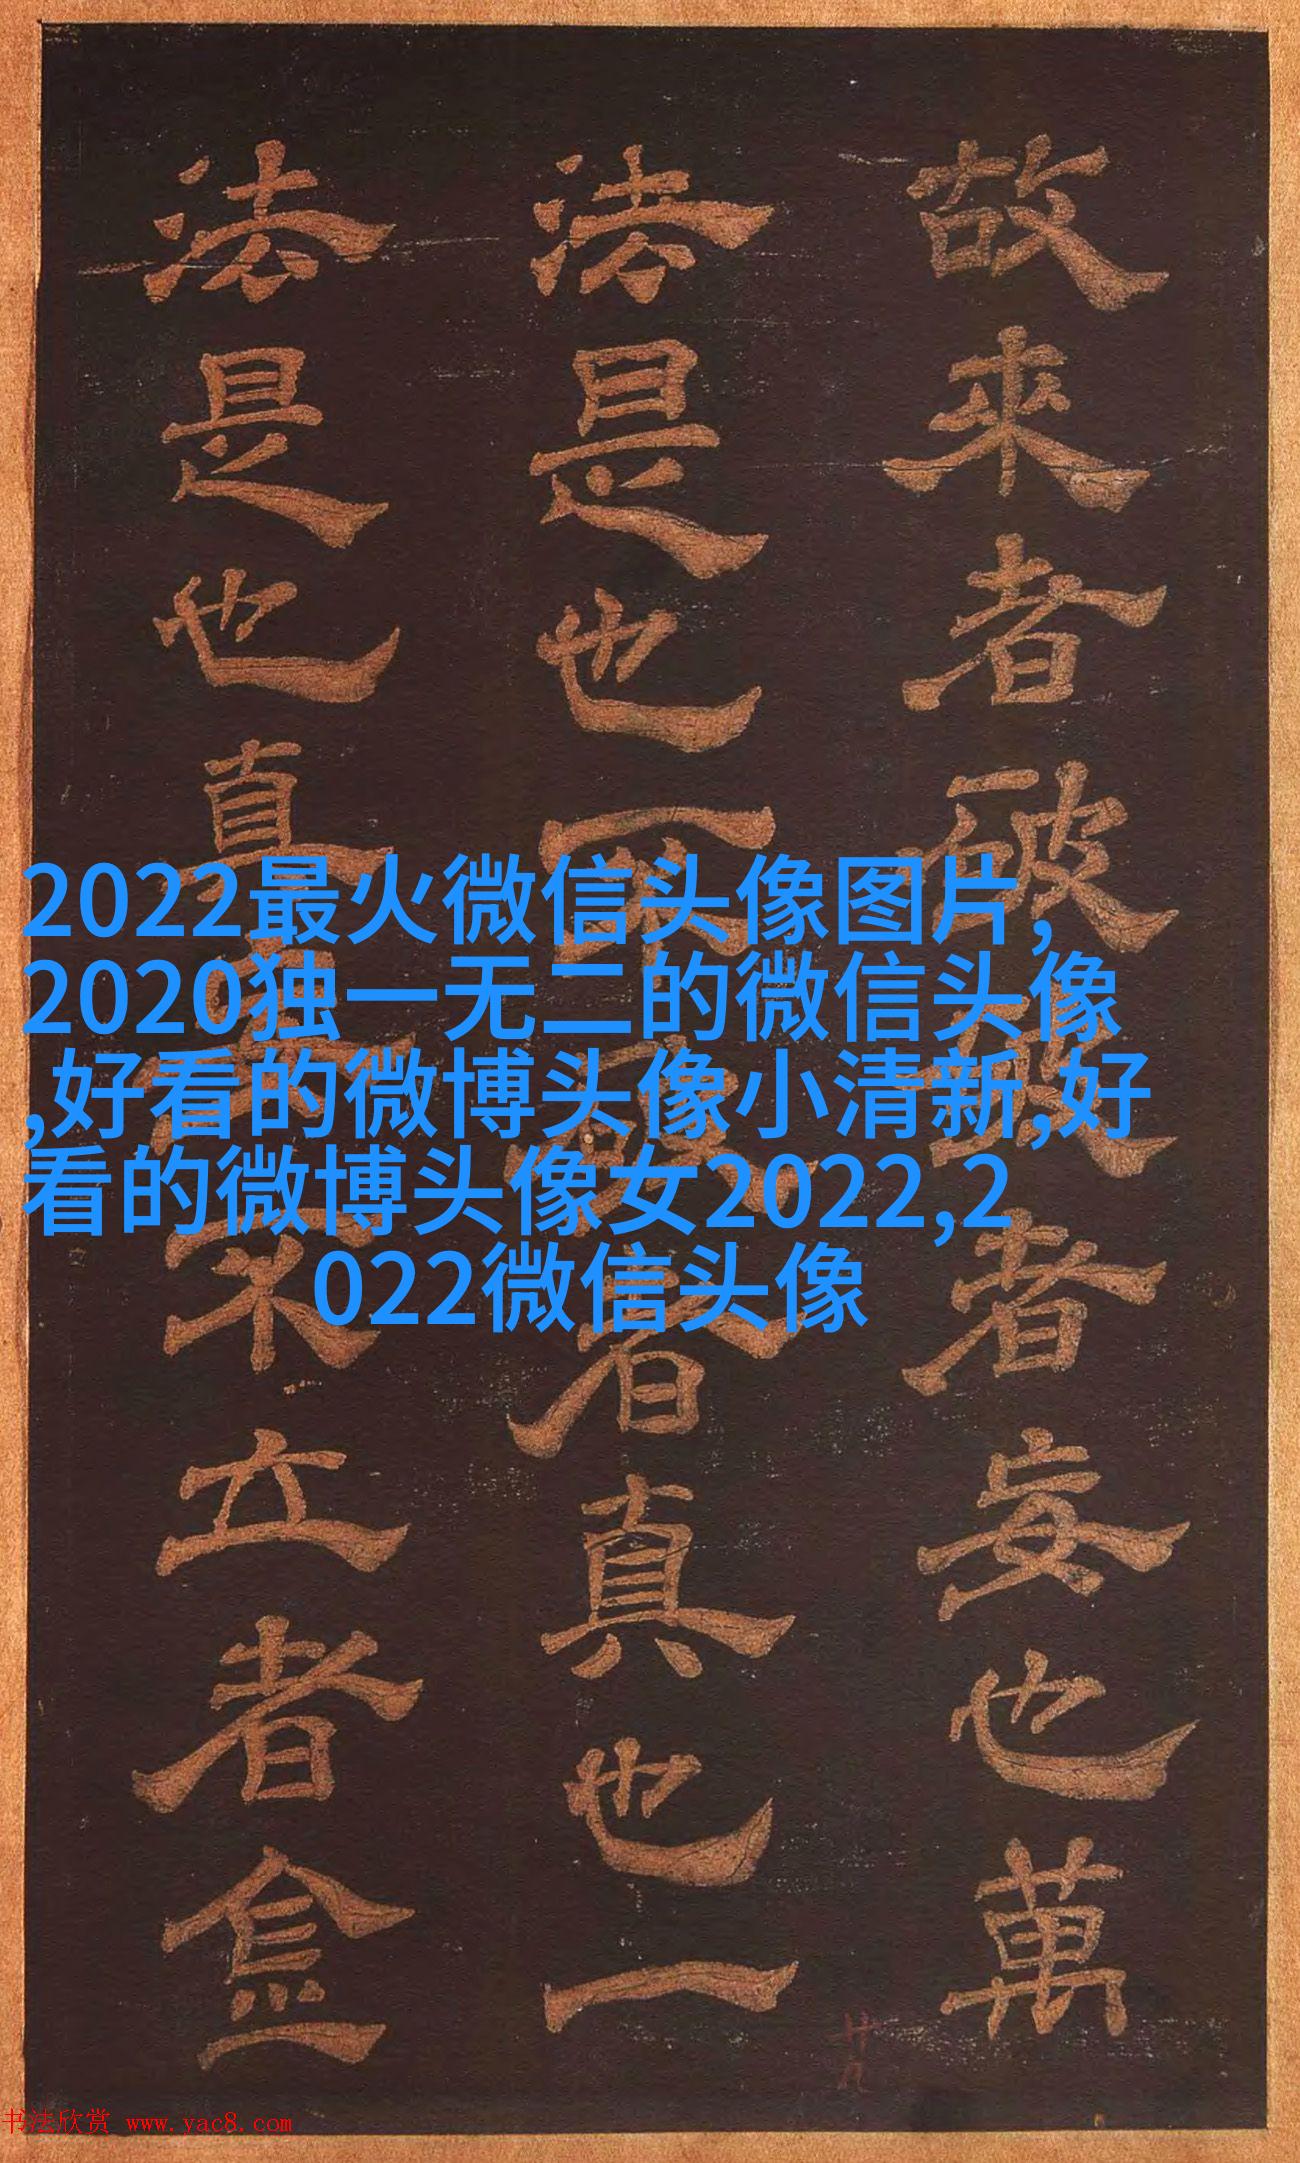 2022最火微信头像图片,
2020独一无二的微信头像
,好看的微博头像小清新,好
看的微博头像女2022,2
022微信头像
故來者破破者妄也萬
法是也不破者真也一
法是也真不立者
廿九
书法欣赏 www.yac8.com